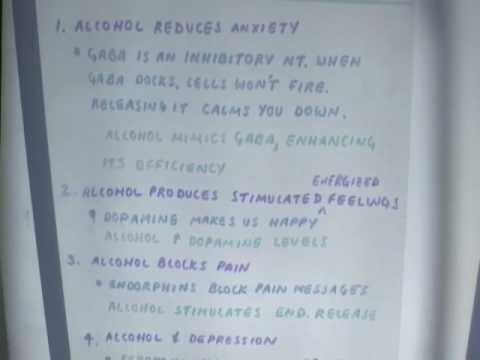 1. ALCOHOL REDUCES ANXIETY
• GABA IS AN INHIBITORY NT. WHEN
GABA DOCKS, CELLS WON'T FIRE.
RELEASING IT CALMS YOU DOWN.
ALCOHOL MIMICS GABA, ENHANCING
ITS EFFICIENCY
ENERGIZED
2. ALCOHOL PRODUCES STIMULATED ^ FEELINGS
↑ DOPAMINE MAKES US HAPPY
ALCOHOL ↑ DOPAMINE LEVELS
3. ALCOHOL BLOCKS PAIN
• ENDORPHINS BLOCK PAIN MESSAGES
ALCOHOL STIMULATES END. RELEASE
4. ALCOHOL & DEPRESSION